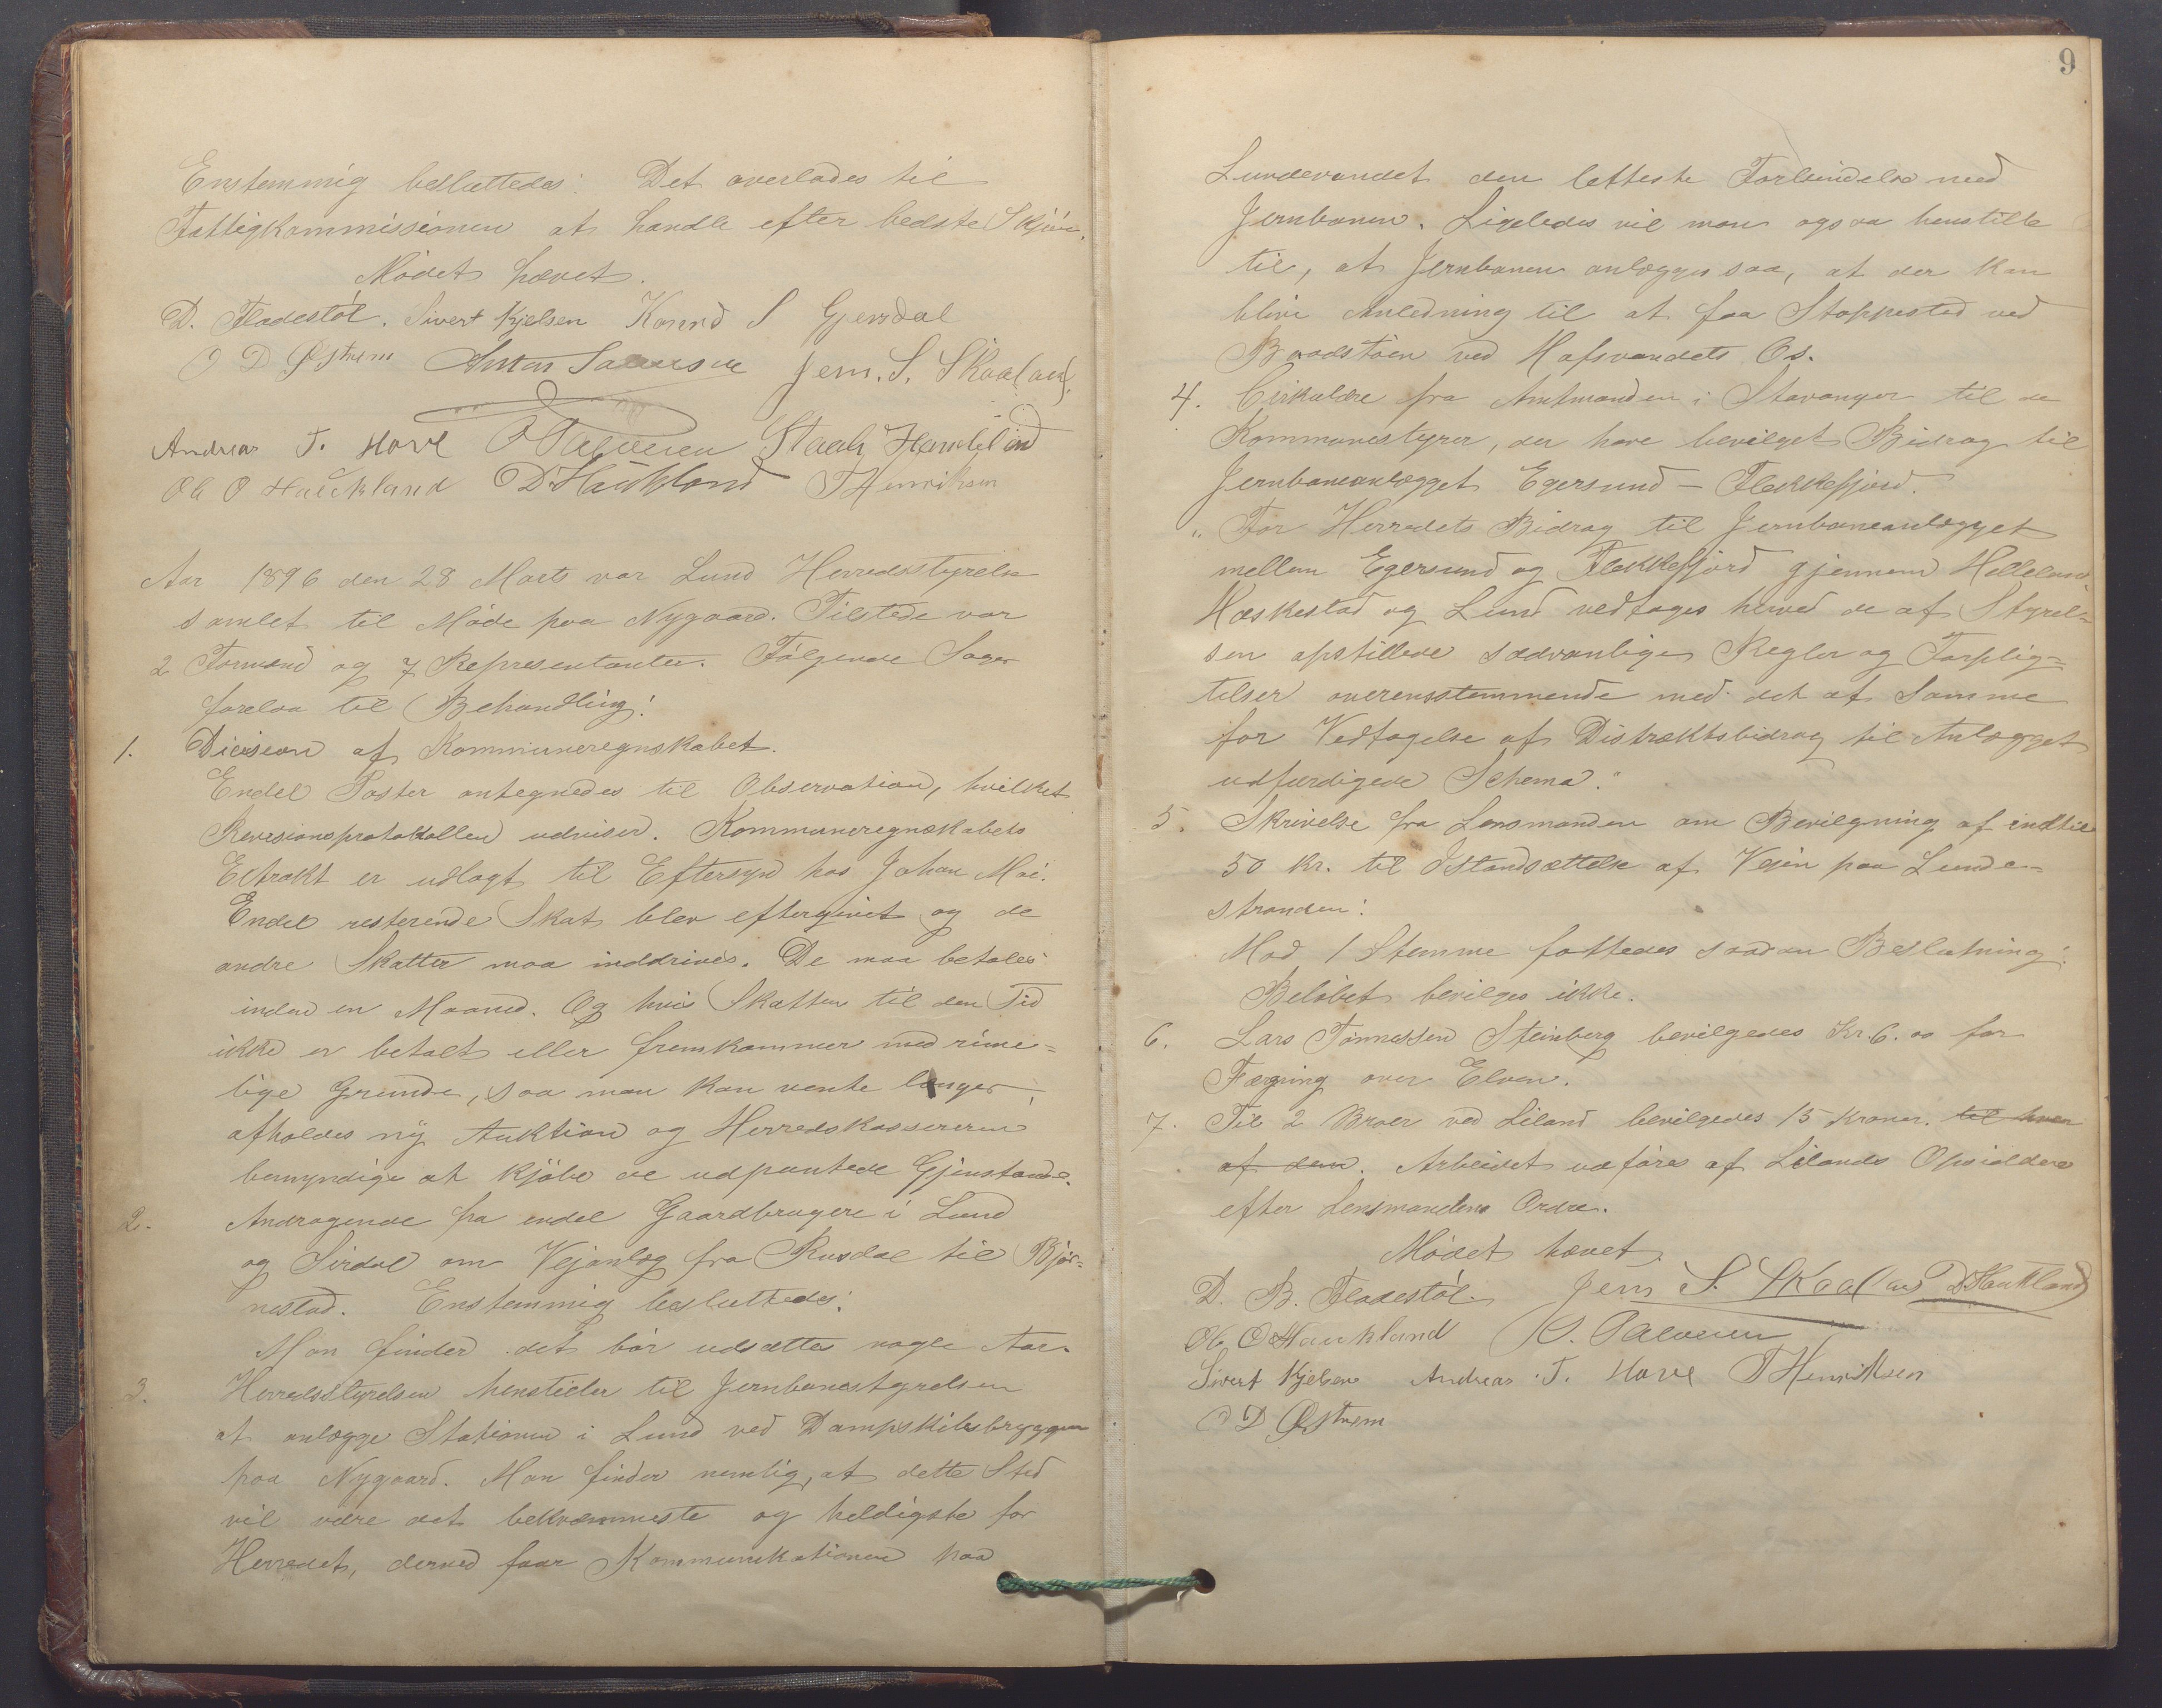 Enstemmig besluttedes: Det overlades til
Fattigkommissionen at handle efter bedste Skjøn.
Mödet hævet.
D. Fladestøl. Sivert Kjelsen Konrad S Gjersdal
O D Østrem Anton Jens. S. Skaaland.
Andreas T. Hove Staale Haukland
Ole O Hauckland D Haukland T Henriksen
Aar 1896 den 28 Marts var Lund Herredsstyrelse
samlet til Möde paa Nygaard. Tilstede var
2 Formænd og 7 Representanter. Følgende Sager
forelaa til Behandling:
1. Dicision af Kommuneregnskabet.
Endel Poster antegnedes til Observation, hvilket
Revisionsprotokollen udviser. Kommuneregnskabets
Extrakt er udlagt til Eftersyn hos Johan Moi.
Endel resterende Skat blev eftergivet og de
andre Skatter maa inddrives. De maa betales
inden en Maaned. Og hvis Skatten til den Tid
ikke er betalt eller fremkommer med rime=
lige Grunde, saa man kan vente længer,
afholdes ny Auktion og Herredskassereren
bemyndiges at kjöbe de udpantede Gjenstande.
2. Andragende fra endel Gaardbrugere i Lund
og Sirdal om Vejanlæg fra Rusdal til Bjør=
nestad. Enstemmig besluttedes:
Man finder det bör udsættes nogle Aar.
3. Herredsstyrelsen henstiller til Jernbanestyrelsen
at anlægge Stationen i Lund ved Dampskibsbryggen
paa Nygaard. Man finder nemlig, at dette Sted
vil være det bekvæmmeste og heldigste for
Herredet, derved faar Kommunikationen paa
9
Lundevandet den letteste Forbindelse med
Jernbanen. Ligeledes vil man ogsaa henstille
til, at Jernbanen anlægges saa, at der kan
blive Anledning til at faa Stoppested ved
Baadstöen ved Hafsvandets Os.
4. Cirkulære fra Amtmanden i Stavanger til de
Kommunestyrer, der have bevilget Bidrag til
Jernbaneanlægget Egersund – Flekkefjord.
"For Herredets Bidrag til Jernbaneanlægget
mellem Egersund og Flekkefjord gjennem Helleland,
Hæskestad og Lund vedtages herved de af Styrel=
sen opstillede sædvanlige Regler og Forplig=
telser overensstemmende med det af Samme
for Vedtagelse af Distriktsbidrag til Anlægget
udfærdigede Schema."
5. Skrivelse fra Lensmanden om Bevilgning af indtil
50 Kr. til Istandsættelse af Vejen paa Lunde=
stranden:
Mod 1 Stemme fattedes saadan Beslutning:
Belöbet bevilges ikke.
6. Lars Tönnessen Steinberg bevilgedes Kr. 6.00 for
Færging over Elven.
7. Til 2 Broer ved Liland bevilgedes 15 Kroner. til hver
af dem. Arbeidet udföres af Lilands Opsiddere
efter Lensmandens Ordre.
Mödet hævet.
D. B. Fladestøl. Jens S. Skaaland D Haukland
Ole O Haukland
Sivert Kjelsen Andreas T. Hove T Henriksen
O D Østrem